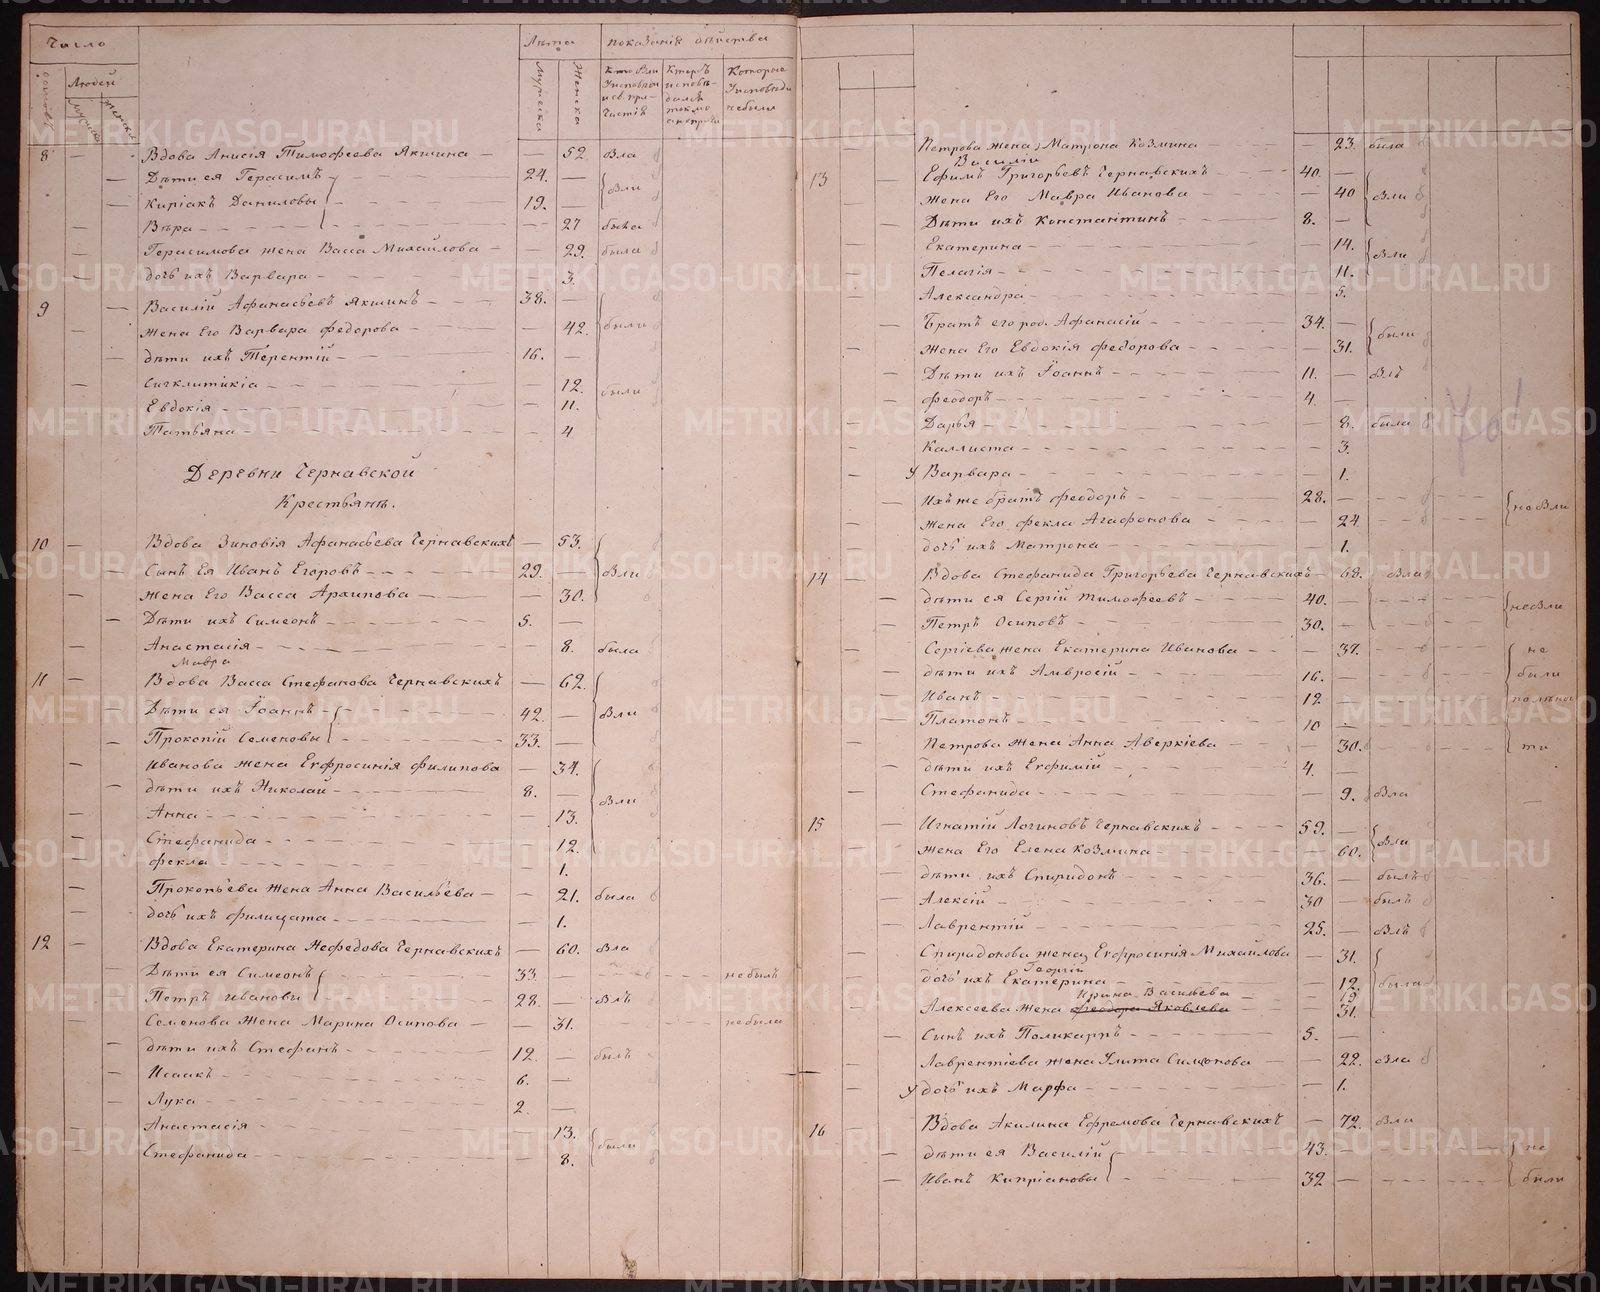 Число
Лѣта
показанія дѣйства
домовъ
Людей
мужска
женска
Мужеска
Женска
Кто были
у исповѣди
и св. при-
частія
Которые
Исповѣди
не были
8 Вдова Анисія Тимофеева Якшина — 52. Бла
Дѣти ея Герасимъ 24. — Бли
Киріакъ Даниловы 19. —
Вѣра — 27 была
Герасимова жена Васса Михайлова — 29. была
дочь ихъ Варвара 3.
9 Василій Афанасьевъ Якшинъ 38.
Жена Его Варвара Федорова 42. были
дѣти ихъ Терентій 16.
Сигклитикія 12. были
Евдокія 11.
Татьяна 4
Деревни Чернавской
Крестьянъ.
10 Вдова Зиновія Афанасьева Чернавскихъ — 53.
Сынъ Ея Иванъ Егоровъ 29. Бли
Жена Его Васса Архипова 30.
Дѣти ихъ Симеонъ 5. —
Анастасія 8. была
Мавра
11 Вдова Васса Стефанова Чернавскихъ — 62.
Дѣти ея Іоаннъ 42. — Бли
Прокопій Семеновы 33. —
Иванова жена Евфросинія Филипова — 34.
дѣти ихъ Николай 8. — Бли
Анна 13.
Стефанида 12.
Фекла 1.
Прокопьева Жена Анна Васильева 21. была
дочь ихъ Филицата 1.
12 Вдова Екатерина Нефедова Чернавскихъ — 60. Бла
Дѣти ея Симеонъ 33 не былъ
Петръ Ивановы 28. — Блъ
Семенова Жена Марина Осипова — 31. не была
дѣти ихъ Стефанъ 12. — былъ
Исаакъ 6. —
Лука 2. —
Анастасія 13. были
Стефанида 8.
Петрова Жена Матрона Козмина — 23. была
Василій
13 Ефимъ Григорьевъ Чернавскихъ 40. —
Жена Его Мавра Иванова — 40 Бли
Дѣти ихъ Константинъ 8. —
Екатерина 14. Бли
Пелагія 11.
Александра 5.
Братъ его род. Афанасій 34. — были
Жена Его Евдокія Федорова — 31.
Дѣти ихъ Іоаннъ 11. — Блъ
Феодоръ 4. —
Дарья 8. была
Каллиста 3.
У Варвара 1.
Ихъ же братъ Феодоръ 28. — не Бли
Жена Его Фекла Агафонова — 24
дочь ихъ Матрона 1.
14 Вдова Стефанида Григорьева Чернавскихъ — 68. Бла
дѣти ея Сергій Тимофеевъ 40. — не Бли
Петръ Осиповъ 30. —
Сергіева жена Екатерина Иванова — 37. не
дѣти ихъ Амвросій 16. — были
Иванъ 12 —
Платонъ 10
Петрова Жена Анна Аверкіева — 30. ти
дѣти ихъ Евфимій 4. —
Стефанида 9. Бла
15 Игнатій Логиновъ Чернавскихъ 59. — Бли
Жена Его Елена Козмина 60.
дѣти ихъ Спиридонъ 36. — былъ
Алексій 30 — былъ
Лаврентій 25. — Блъ
Спиридонова жена Евфросинія Михайлова 31.
Георгій
дочь ихъ Екатерина 12. была
Ирина Васильева 19
Алексеева Жена Феодора Яковлева 31.
Сынъ ихъ Поликарпъ 5. —
Лаврентіева жена Улита Симонова — 22. Бла
У дочь ихъ Марфа 1.
16 Вдова Акилина Ефремова Чернавскихъ — 72. Бла
дѣти ея Василій 43. — не
Иванъ Кипріановы 32 — были